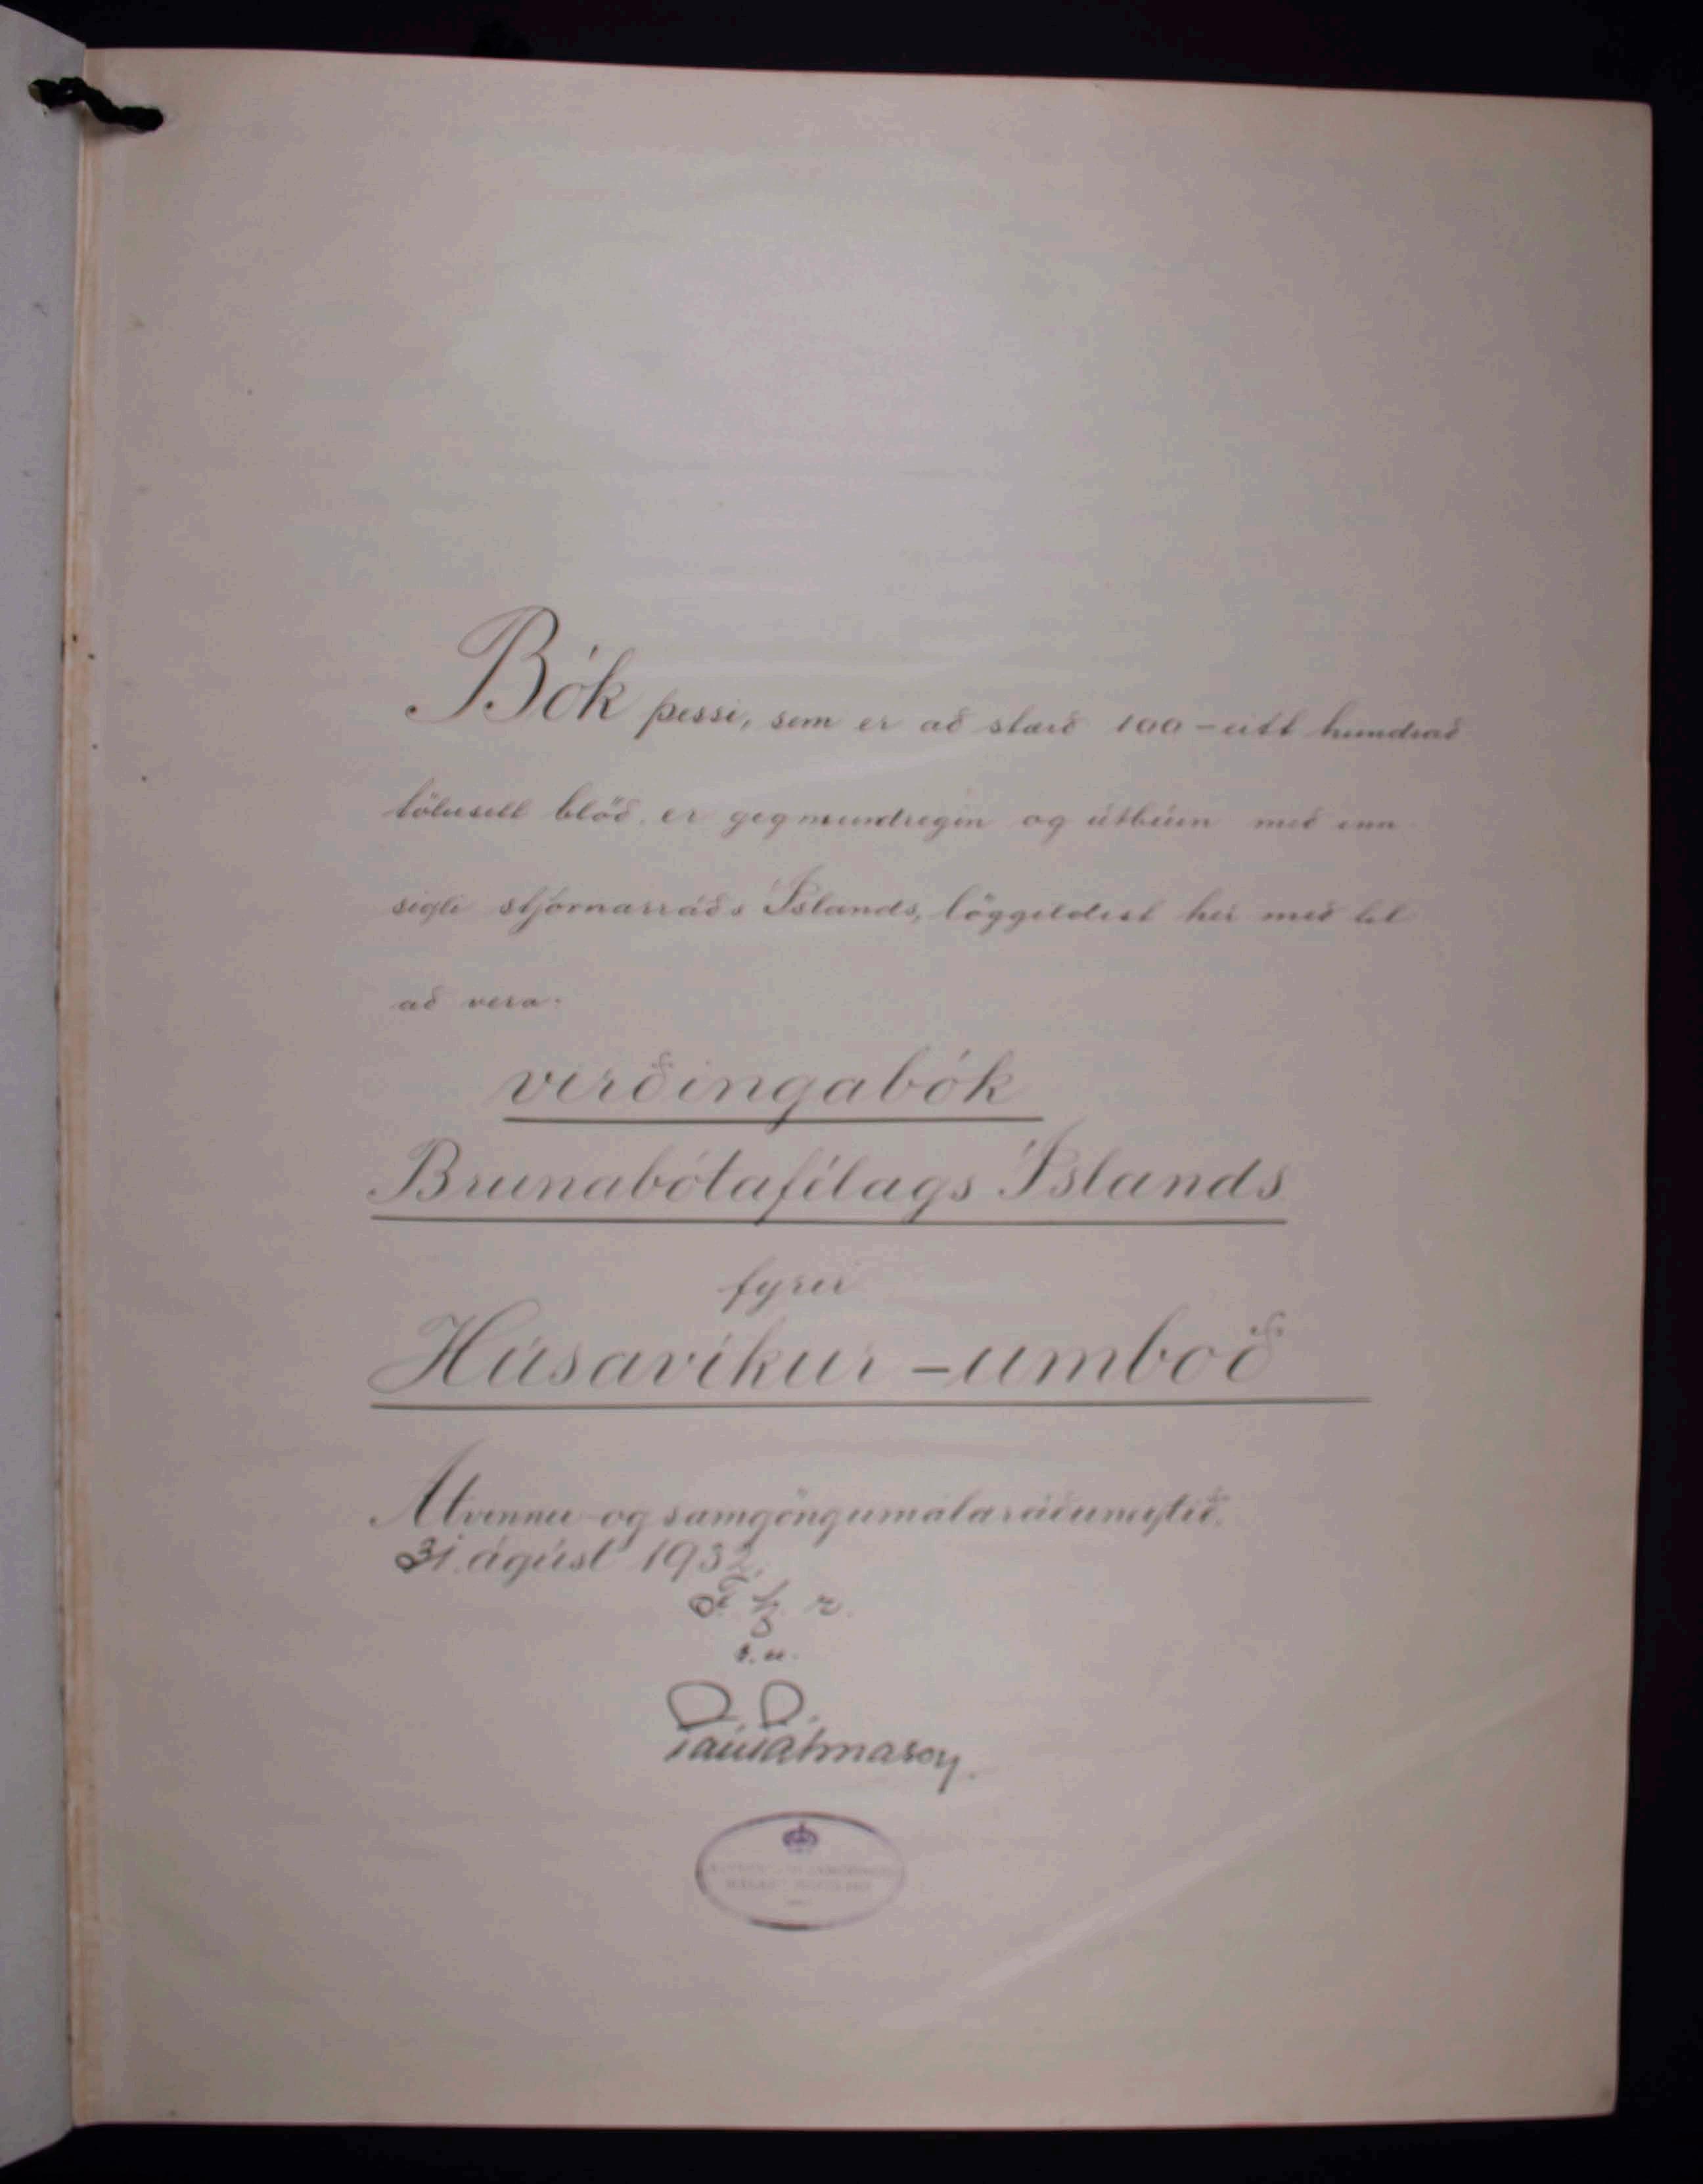 Bók þessi, sem er að stærð 100 - eitt hundrað
tölusett blöð, er gegnumdregin og útbúin með inn
sigli stjórnarráðs Íslands, löggildist hér með til
að vera.
virðingabók
Brunabótafélags Íslands
fyrir
Húsavíkur - umboð
Atvinnu- og samgöngumálaráðuneytið.
31. ágúst 1932.
F. h. r.
e. u.